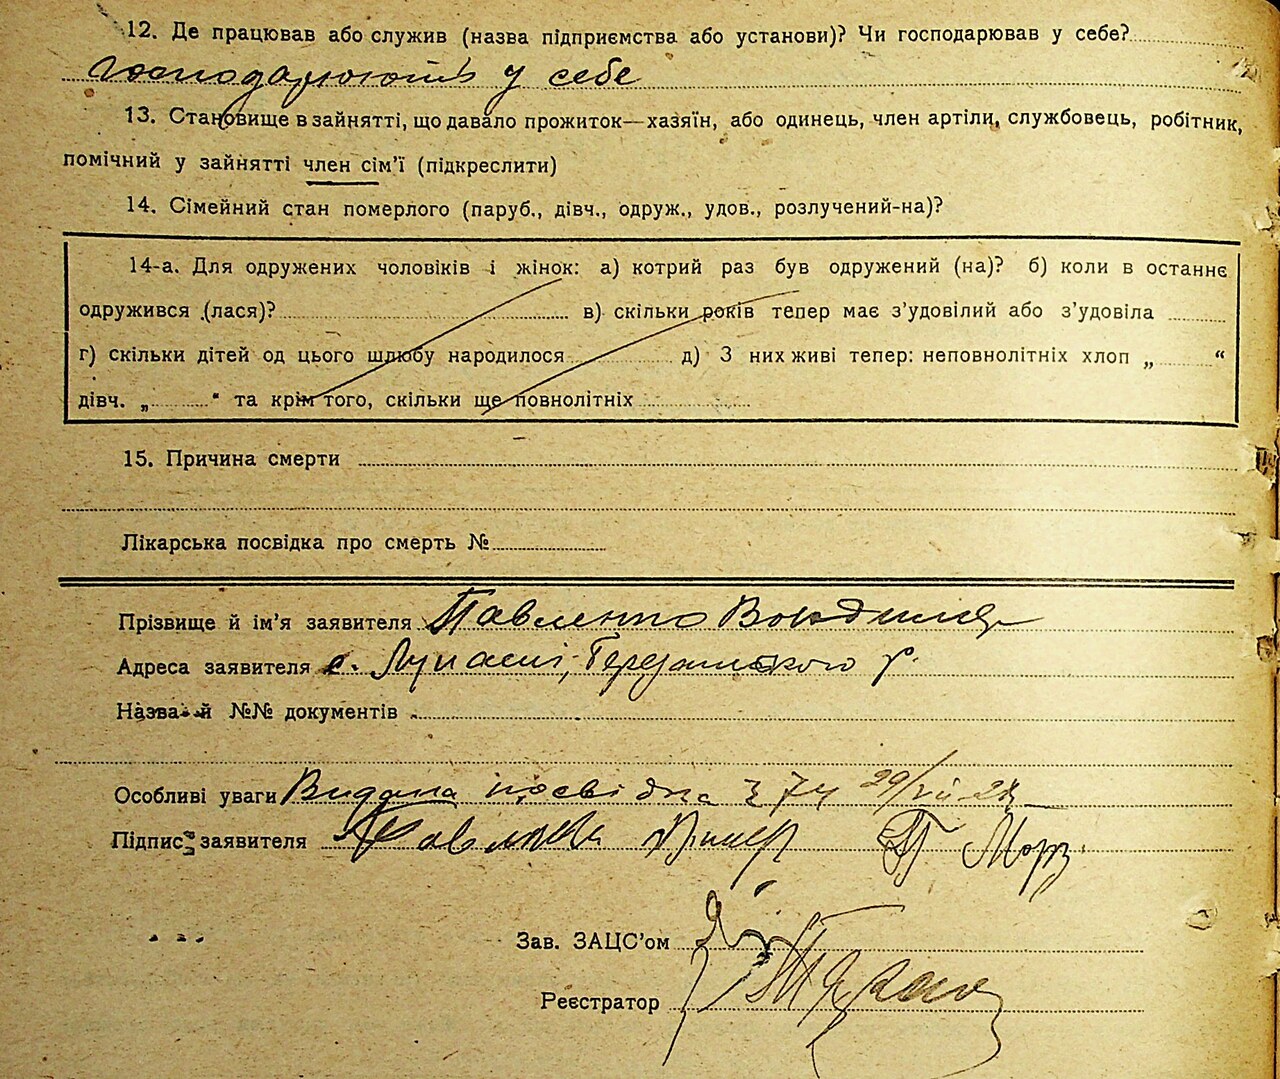 12. Де працював або служив (назва підприємства або установи)? Чи господарював у себе?
Господарюють у себе
13. Становище в зайнятті, що давало прожиток—хазяїн, або одинець, член артіли, службовець, робітник,
помічний у зайнятті член сім'ї (підкреслити)
14. Сімейний стан померлого (паруб., дівч., одруж., удов., розлучений-на)?
14-а. Для одружених чоловіків і жінок: а) котрий раз був одружений (на)? б) коли в останнє
одружився (лася)? в) скільки років тепер має з'удовілий або з'удовіла
г) скільки дітей од цього шлюбу народилося д) З них живі тепер: неповнолітніх хлоп „ “
дівч. „ “ та крім того, скільки ще повнолітніх
15. Причина смерти
Лікарська посвідка про смерть №
Прізвище й ім'я заявителя Павленко
Адреса заявителя с.
Назва й №№ документів
Особливі уваги Видана посвідка
Підпис заявителя
Зав. ЗАЦС'ом
Реєстратор